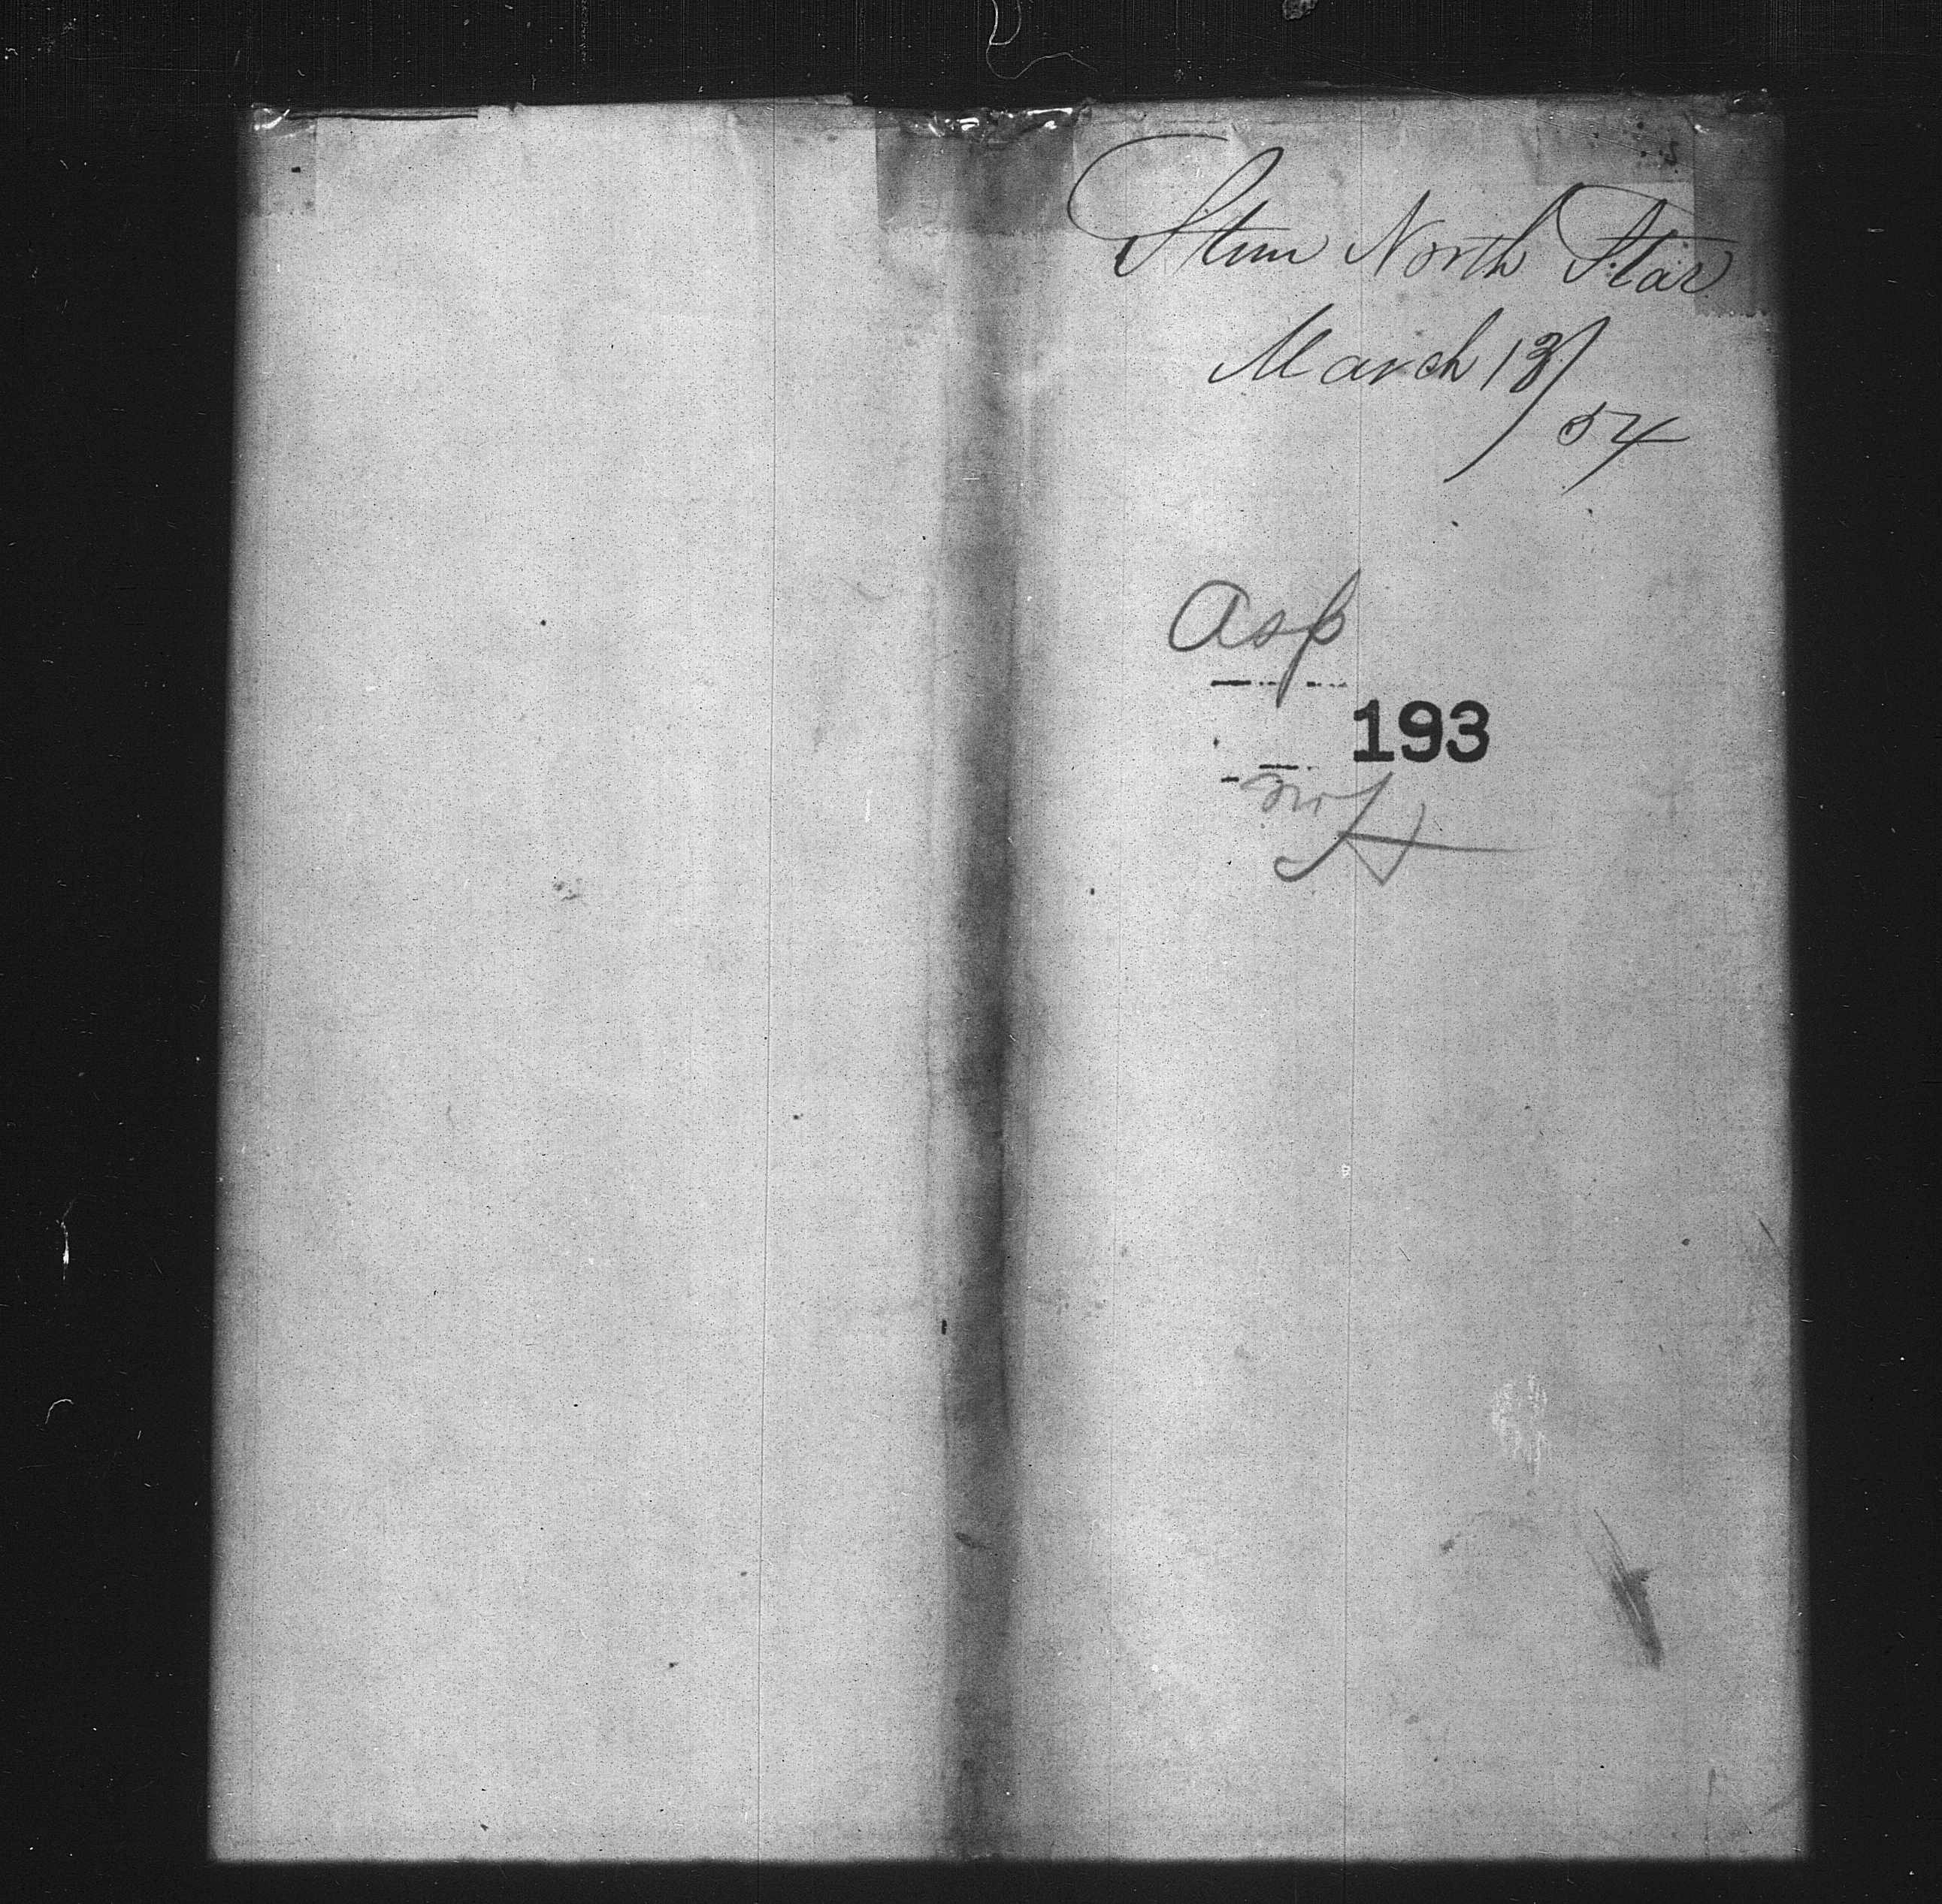 Stmr North Star
March 13/
54
Asp
193